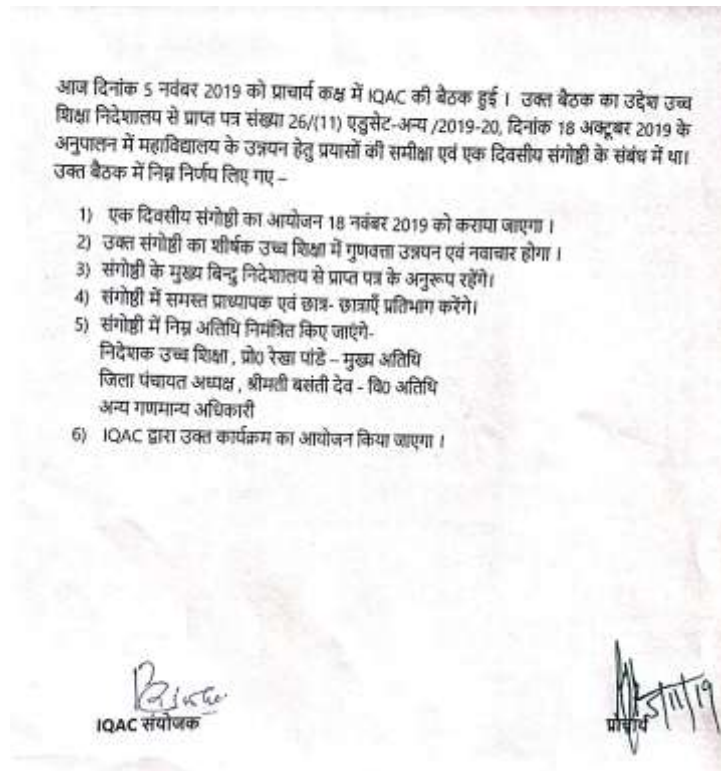 आज दिनांक 5 नवंबर 2019 को प्राचार्य कक्ष में IQAC की बैठक हुई । उक्त बैठक का उद्देश उच्च
शिक्षा निदेशालय से प्राप्त पत्र संख्या 26/(11) एडुसेट-अन्य /2019-20, दिनांक 18 अक्टूबर 2019 के
अनुपालन में महाविद्यालय के उन्नयन हेतु प्रयासों की समीक्षा एवं एक दिवसीय संगोष्ठी के संबंध में था।
उक्त बैठक में निम्न निर्णय लिए गए –
1) एक दिवसीय संगोष्ठी का आयोजन 18 नवंबर 2019 को कराया जाएगा ।
2) उक्त संगोष्ठी का शीर्षक उच्च शिक्षा में गुणवत्ता उन्नयन एवं नवाचार होगा ।
3) संगोष्ठी के मुख्य बिन्दु निदेशालय से प्राप्त पत्र के अनुरूप रहेंगे।
4) संगोष्ठी में समस्त प्राध्यापक एवं छात्र- छात्राएँ प्रतिभाग करेंगे।
5) संगोष्ठी में निम्न अतिथि निमंत्रित किए जाएंगे-
निदेशक उच्च शिक्षा , प्रो0 रेखा पांडे – मुख्य अतिथि
जिला पंचायत अध्यक्ष , श्रीमती बसंती देव - वि0 अतिथि
अन्य गणमान्य अधिकारी
6) IQAC द्वारा उक्त कार्यक्रम का आयोजन किया जाएगा ।
5/11/19
IQAC संयोजक
प्राचार्य